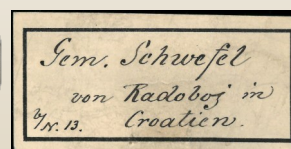 Gem. Schwefel
von Radoboj in
Croatien.
N. 13.